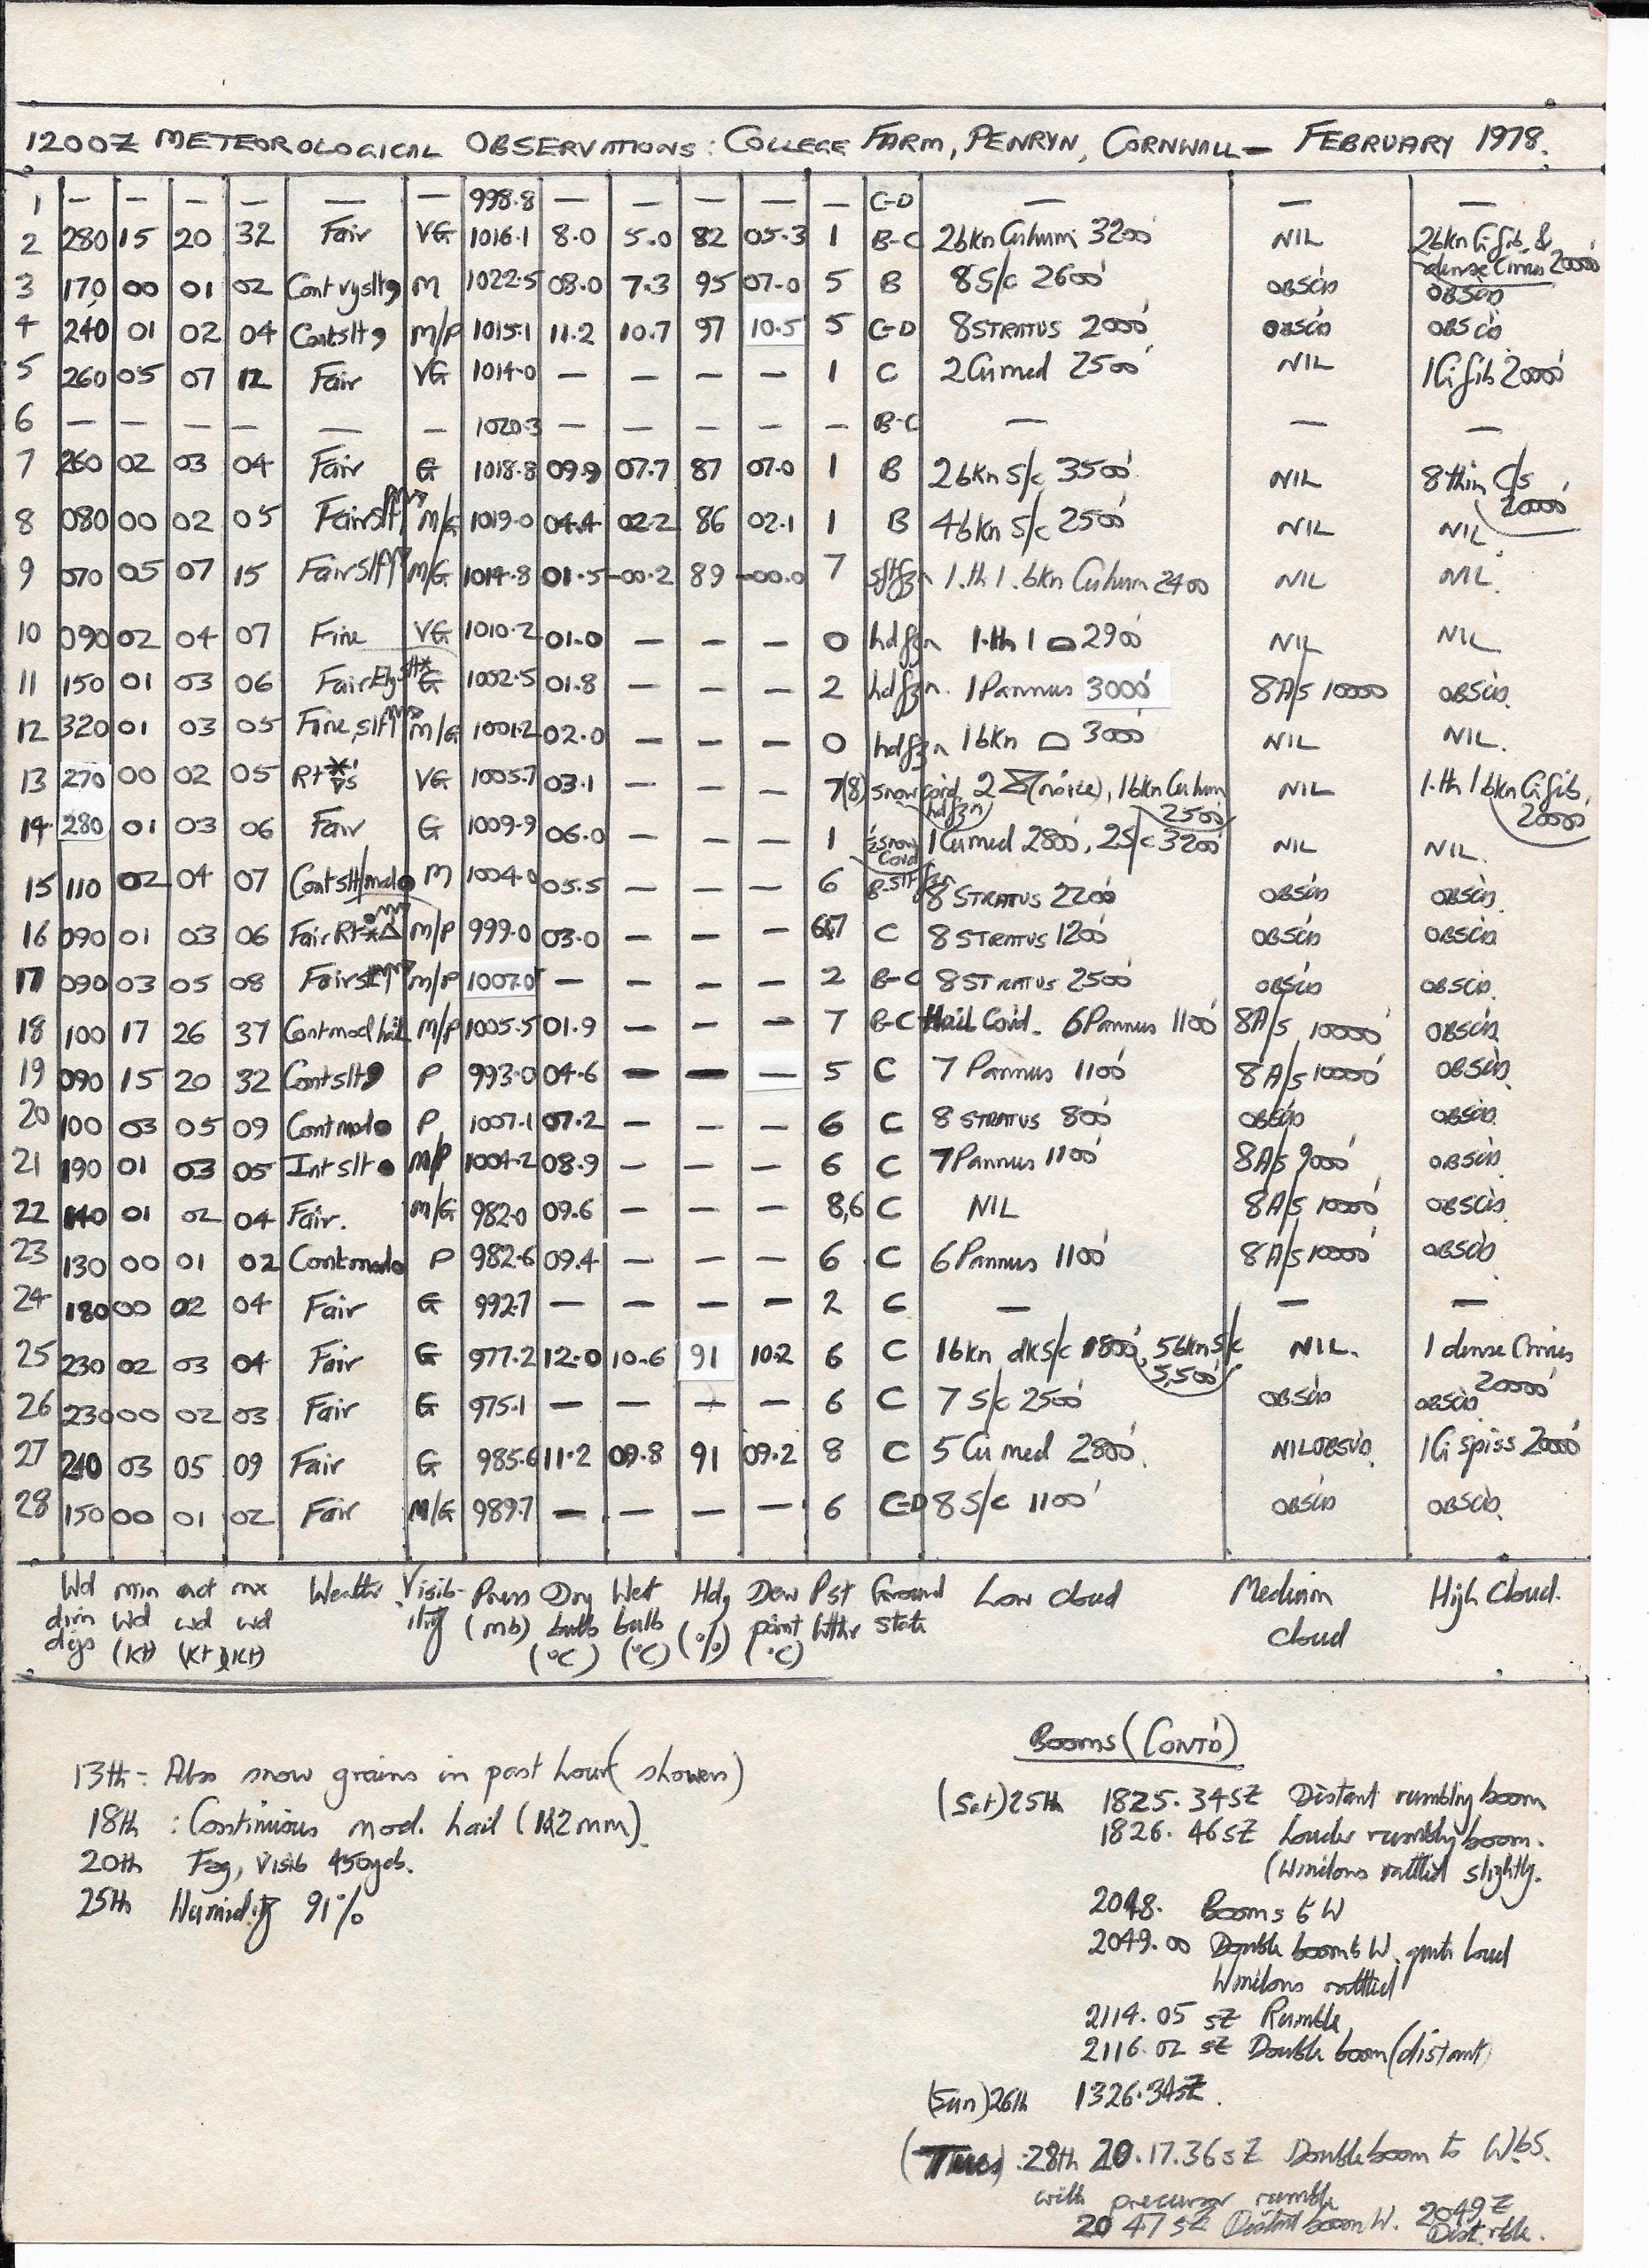 1200Z METEOROLOGICAL OBSERVATIONS: COLLEGE FARM, PENRYN, CORNWALL — FEBRUARY 1978.
1 — — — — — — 998.8 — — — — — C-D — — —
2 280 15 20 32 Fair VG 1016.1 8.0 5.0 82 05.3 1 B-C 2bkn Cuhum 3200' NIL 2bkn Cifib &
dense Cirrus 20000'
3 170 00 01 02 Cont vyslt, M 1022.5 08.0 7.3 95 07.0 5 B 8S/c 2600' OBSCD OBSCD
4 240 01 02 04 Contslt, M/P 1015.1 11.2 10.7 97 10.5 5 C-D 8STRATUS 2000' OBSCD OBSCD
5 260 05 07 12 Fair VG 1014.0 — — — — 1 C 2Cumed 2500' NIL 1Cifib 20000'
6 — — — — — — 1020.3 — — — — — B-C — — —
7 260 02 03 04 Fair G 1018.8 09.9 07.7 87 07.0 1 B 2bkn S/c 3500' NIL 8thin C/s
20000'
8 080 00 02 05 FairSlt M/G 1019.0 04.4 02.2 86 02.1 1 B 4bkn S/c 2500' NIL NIL.
9 070 05 07 15 FairSlt M/G 1014.8 01.5 -00.2 89 -00.0 7 sltfzn 1.th 1.bkn Cuhum 2400 NIL NIL.
10 090 02 04 07 Fine VG 1010.2 01.0 — — — 0 hdfzn 1.th 1 ⌓ 2900' NIL NIL
11 150 01 03 06 Fair slt* G 1002.5 01.8 — — — 2 hdfzn. 1Pannus 3000' 8A/s 10000 OBSCD.
12 320 01 03 05 Fine, slt M/G 1001.2 02.0 — — — 0 hdfzn 1bkn ⌓ 3000' NIL NIL.
13 270 00 02 05 Rt VG 1005.7 03.1 — — — 7(8) snow covd, 2 (no ice), 1bkn Cuhum NIL 1.th 1bkn Cifib,
hdfzn 2500' 20000
14 280 01 03 06 Fair G 1009.9 06.0 — — — 1 ½snow 1Cumed 2800', 2S/c 3200' NIL NIL.
Covd
15 110 02 04 07 Contslt/mod● M 1004.0 05.5 — — — 6 B-slt fzn 8 STRATUS 2200' OBSCD OBSCD.
16 090 01 03 06 Fair Rt M/P 999.0 03.0 — — — 6,7 C 8 STRATUS 1200' OBSCD OBSCD
17 090 03 05 08 Fairslt M/P 1007.0 — — — — 2 B-C 8STRATUS 2500' OBSCD OBSCD.
18 100 17 26 37 Contmod hail M/P 1005.5 01.9 — — — 7 B-C Hail Covd. 6Pannus 1100' 8A/s 10000' OBSCD.
19 090 15 20 32 Contslt, P 993.0 04.6 — — — 5 C 7 Pannus 1100' 8A/s 10000' OBSCD.
20 100 03 05 09 Contmod● P 1007.1 07.2 — — — 6 C 8 STRATUS 800' OBSCD OBSCD.
21 190 01 03 05 Int slt● M/P 1004.2 08.9 — — — 6 C 7Pannus 1100' 8A/s 9000' OBSCD.
22 140 01 02 04 Fair. M/G 982.0 09.6 — — — 8,6 C NIL 8A/s 10000' OBSCD.
23 130 00 01 02 Contmod● P 982.6 09.4 — — — 6 C 6Pannus 1100' 8A/s 10000' OBSCD.
24 180 00 02 04 Fair G 992.7 — — — — 2 C — — —
25 230 02 03 04 Fair G 977.2 12.0 10.6 91 10.2 6 C 1bkn dkS/c 1800', 5bknS/c NIL. 1 dense Cirrus
5,500' 20000'
26 230 00 02 03 Fair G 975.1 — — — — 6 C 7 S/c 2500' OBSCD OBSCD
27 240 03 05 09 Fair G 985.6 11.2 09.8 91 09.2 8 C 5 Cu med 2800'. NILOBSVD. 1Ci spiss 20000'
28 150 00 01 02 Fair M/G 989.7 — — — — 6 C-D 8 S/c 1100' OBSCD OBSCD.
Wd min act mx Weather Visib- Press Dry Wet Hdy Dew Pst Ground Low Cloud Medium High Cloud.
dirn Wd wd wd ility (mb) bulb bulb (%) point Wthr state cloud
dgs (Kt) (Kt) (Kt) (°C) (°C) (°C)
13th:- Also snow grains in past hour (showers)
18th : Continuous mod. hail (1-2mm).
20th Fog, visib 450yds.
25th Humidity 91%
Booms (CONTD)
(Sat) 25th 1825. 34sZ Distant rumbling boom
1826. 46sZ Louder rumbly boom.
(Windows rattled slightly.
2048. Booms to W
2049.00 Double boom to W. quite loud
Windows rattled
2114.05 sZ Rumble
2116.02 sZ Double boom (distant)
(Sun) 26th 1326.34sZ.
(Tues) 28th 20.17.36sZ Double boom to WbS.
with precursor rumble
20 47 sZ Distant boom W. 2049Z
Dist. rble.